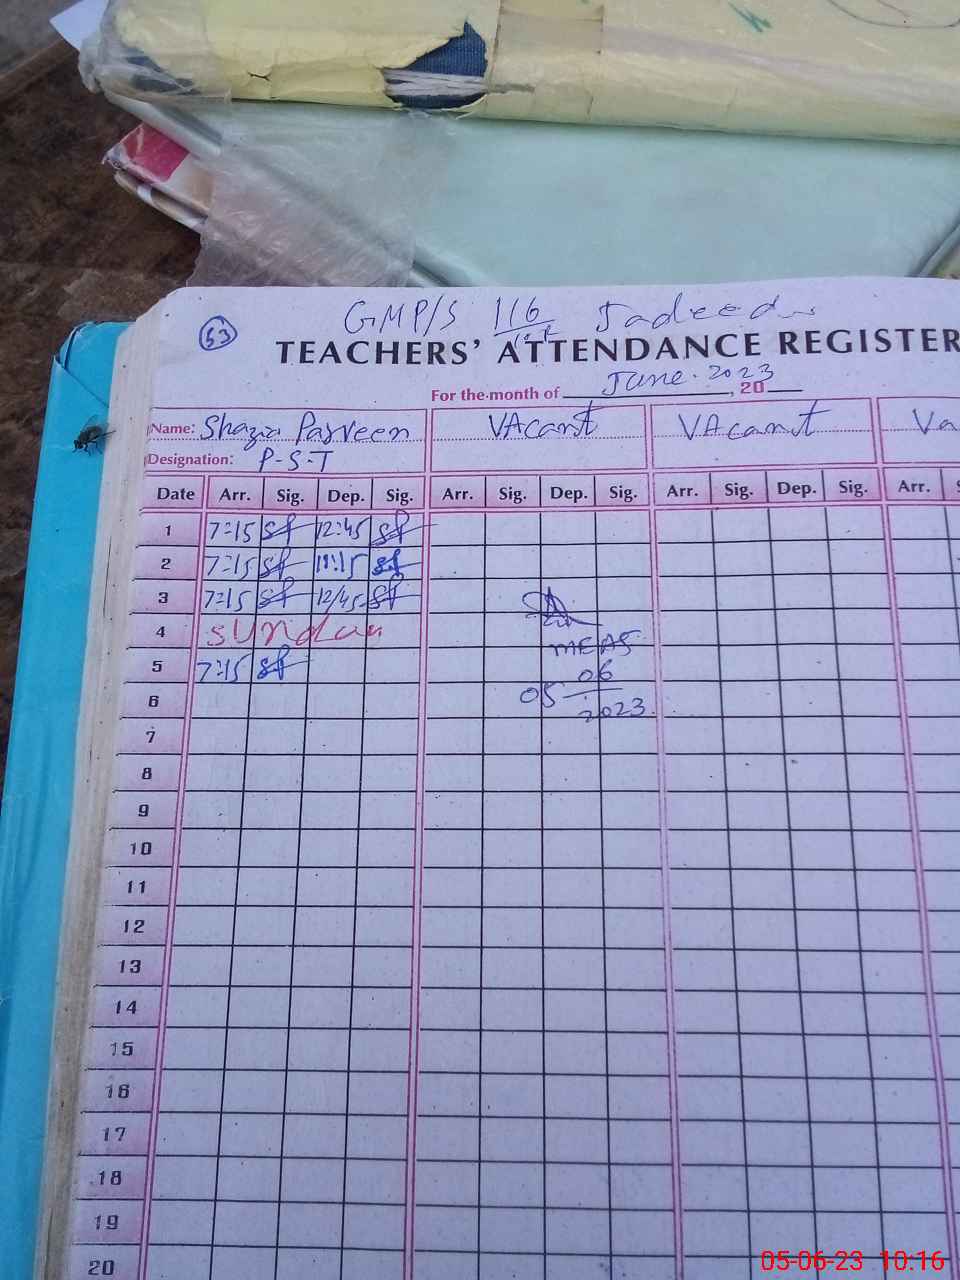 53
GMP/S 116 Jadeed
TEACHERS' ATTENDANCE REGISTER
For the month of June. 2023, 20
Name: Shazia Parveen VAcant VAcant Va
Designation: P-S-T
Date Arr. Sig. Dep. Sig. Arr. Sig. Dep. Sig. Arr. Sig. Dep. Sig. Arr. S
1 7:15 12:45
2 7:15 11:15
3 7:15 12/45
4 Sunday
MEAS
5 7:15
06
05
6
2023
7
8
9
10
11
12
13
14
15
16
17
18
19
20
05-06-23 10:16